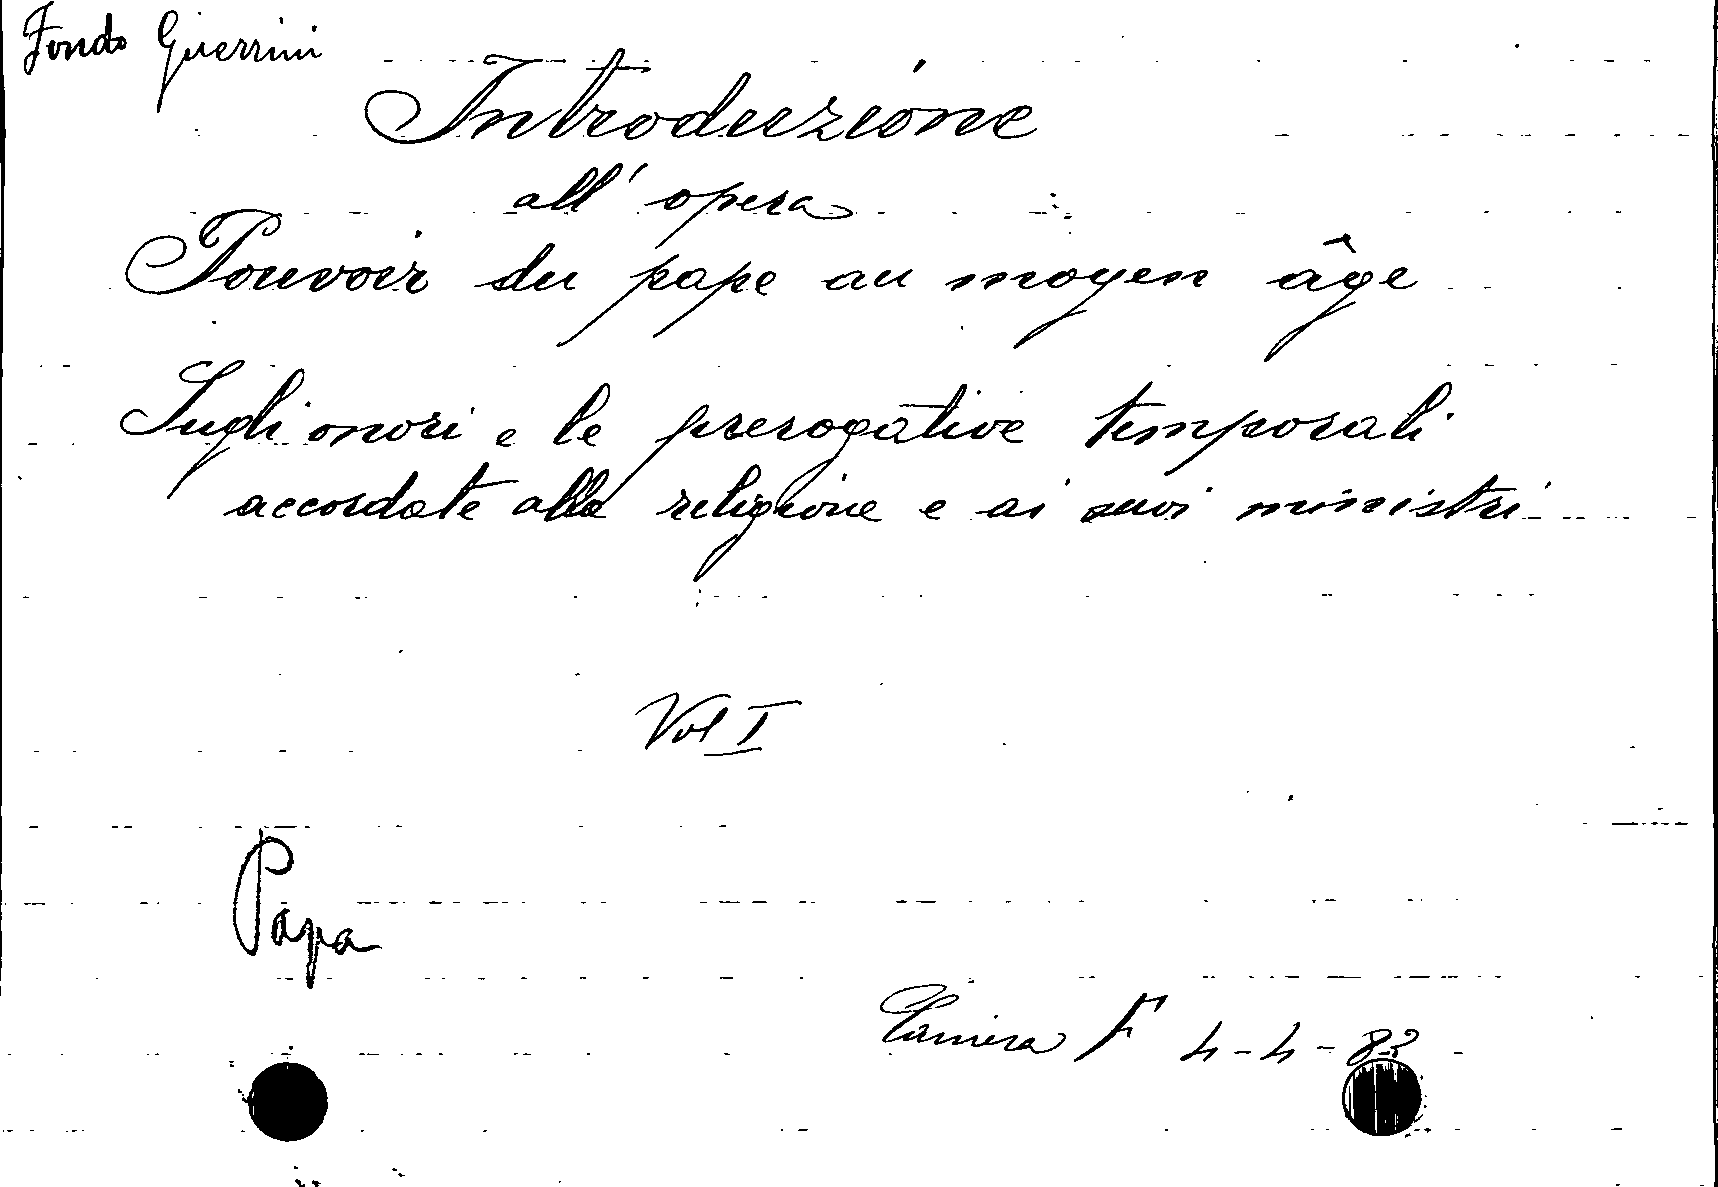 Fondo Guerrini
Introduzione
all' opera
Pouvoir du pape au moyen âge
Sugli onori e le prerogative temporali
accordate alla religione e ai suoi ministri
Vol I
Papa
Camera F 4-4-83